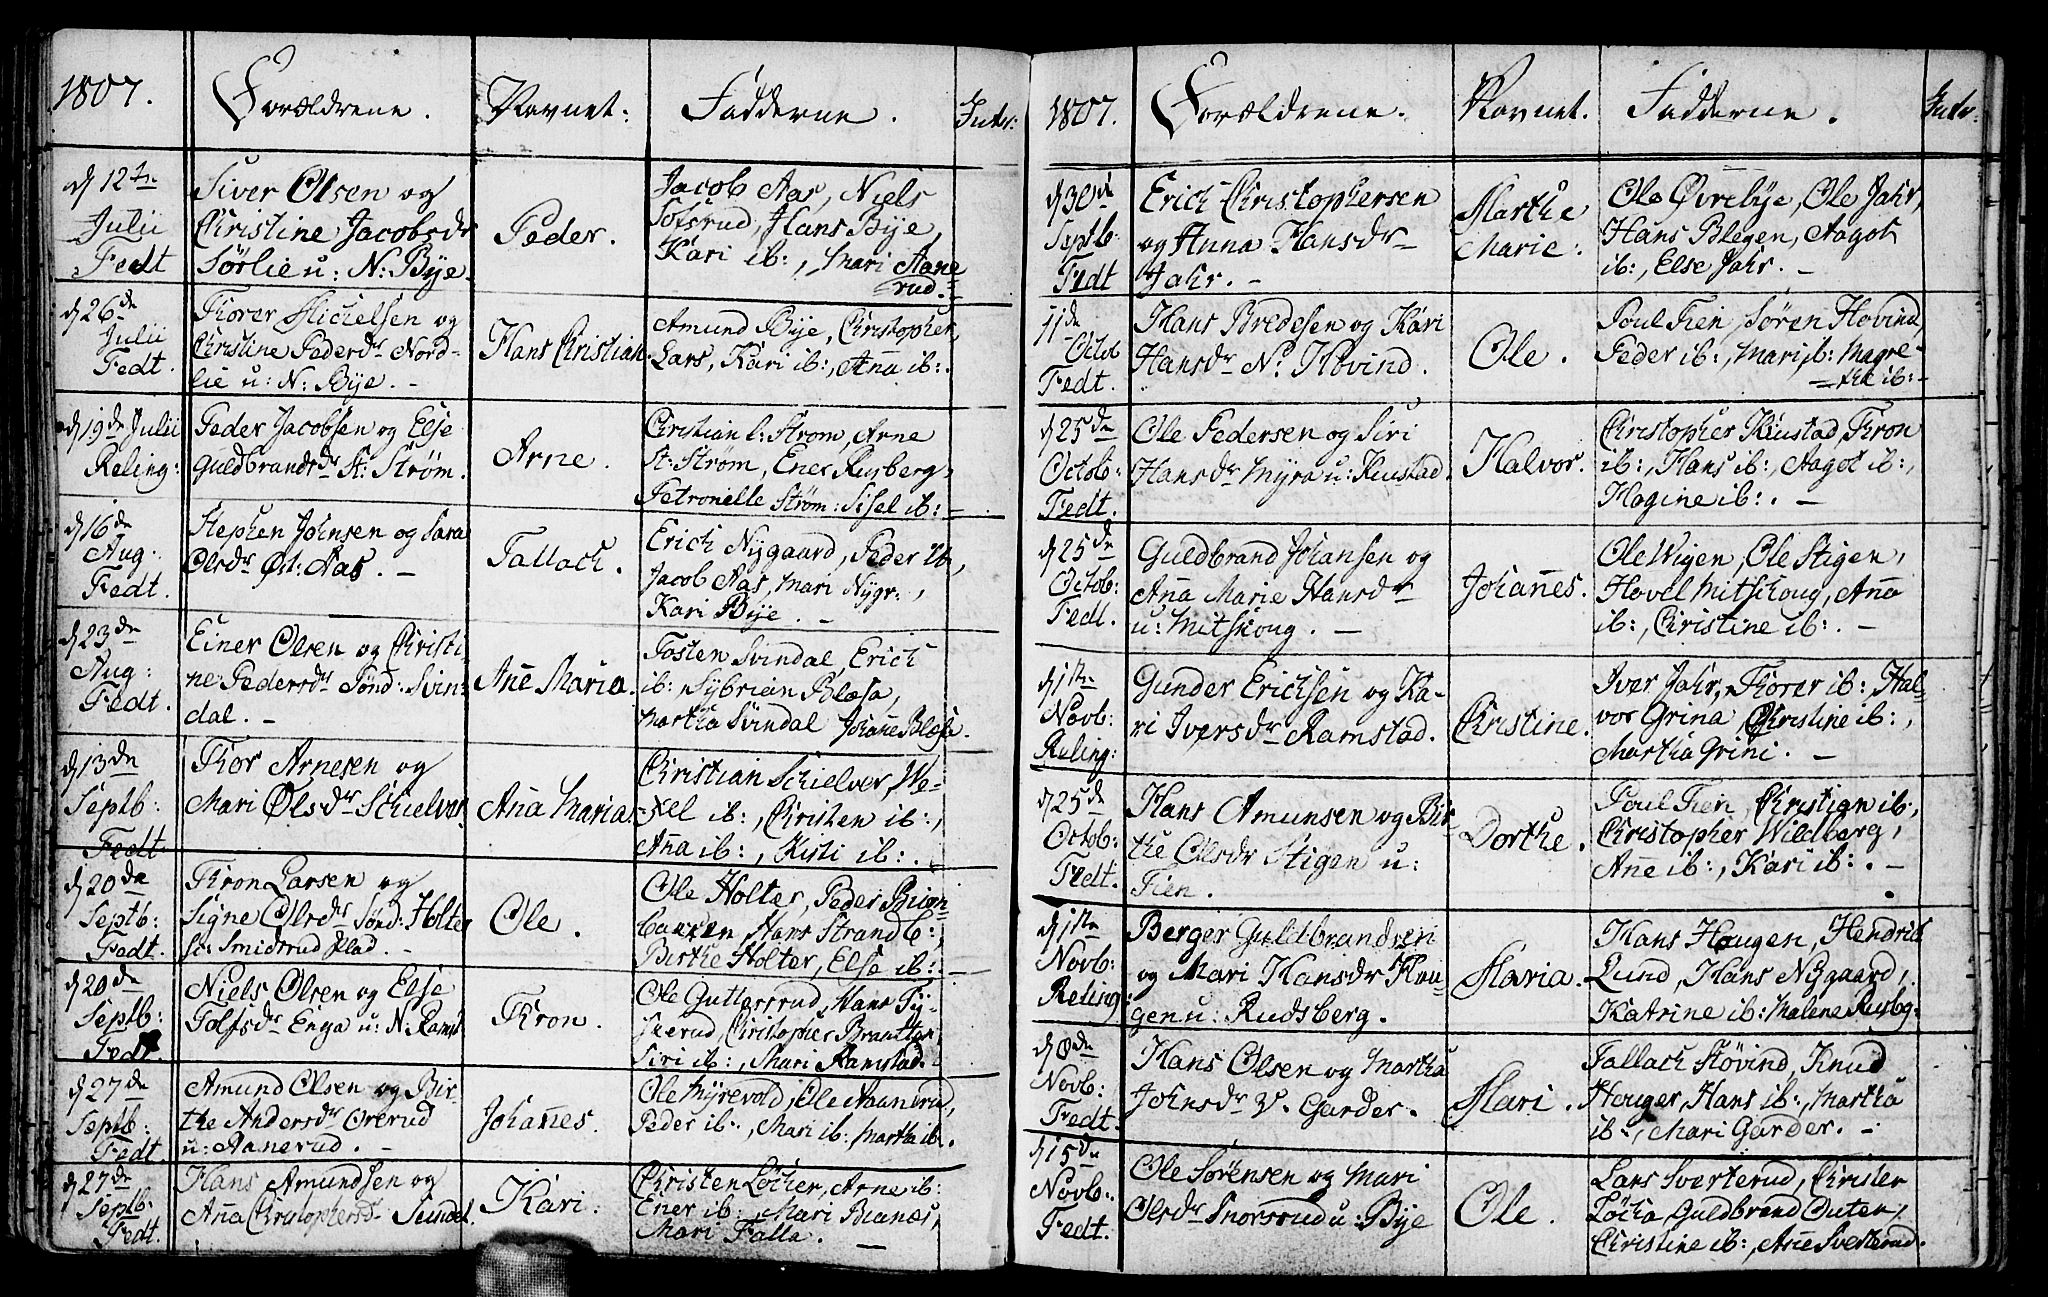 1807.
Forældrene.
Navnet:
Fadderne.
Intr:
d 12te
Julii
Fedt
Siver Olsen og
Christine Jacobsdr
Sørlie u: N: Bye.
Peder.
Jacob Aas, Niels
Tofsrud, Hans Bye,
Kari ib:, Mari Aane
rud.
d 26de
Julii
Fedt.
Thorer Michelsen og
Christine Pedersdr Nord-
lie u: N: Bye. -
Hans Christian.
Amund Bye, Christopher,
Lars, Kari ib:, Anna ib:.
d 19de Julii
Reling:
Peder Jacobsen og Else
Guldbrandsdr St: Strøm.
Arne.
Christian l: Strøm, Arne
St: Strøm, Ener Rusberg,
Petronelle Strøm: Sisel ib: -
d 16de
Aug:
Fedt.
Stephen Johnsen og Sara
Olsdr Øst: Aas. -
Tallach.
Erich Nygaard, Peder ib,
Jacob Aas, Mari Nygr:,
Kari Bye. -
d 23de
Aug:
Fedt.
Einer Olsen og Christi-
ne Pedersdr Sønd: Svin-
dal. -
Añe Maria.
Tosten Svindal, Erich
ib: Sybrian Blæsa,
Martha Svindal Johañe Blæsa.
d 13de
Septb:
Fedt.
Thor Arnesen og
Mari Olsdr Schielver.
Aña Maria.
Christian Schielver, We-
xel ib:, Christen ib:,
Aña ib:, Kisti ib:.
d 20de
Septb:
Fedt.
Thron Larsen og
Signe Olsdr Sønd: Holter
Smidsrud Plad. -
Ole.
Ole Holter, Peder
Hans Strandb:,
Birthe Holter, Else ib:. -
d 20de
Septb:
Fedt.
Niels Olsen og Else
Tolfsdr Enga u: N. Ramst
Thron.
Ole Guttersrud, Hans Ty-
skerud, Christopher
Siri ib:, Mari Ramstad.
d 27de
Septb:
Fedt.
Amund Olsen og Bir-
the Andersdr Ørerud
u: Aanerud. -
Johañes.
Ole Myrevold, Ole Aanerud,
Peder ib:, Mari ib: Martha ib.
d 27de
Septb:
Fedt.
Hans Amundsen og
Aña Christophersdr
Kari.
Christen Løcher, Arne ib:
Ener ib:, Mari Bianes,
Mari Falla. -
1807.
Forældrene.
Navnet.
Fadderne.
Intr.
d 30te
Septb:
Fedt
Erich Christophersen
og Anna Hansdr
Jahr. -
Marthe
Marie.
Ole Øvrebye, Ole Jahr,
Hans Blegen, Aagot
ib:, Else Jahr. -
11de
Octob
Fedt.
Hans Bredesen og Kari
Hansdr N. Hovind.
Ole.
Poul Fien, Søren Hovind,
Peder ib:, Mari ib: Magre-
the ib:-
d 25de
Octob:
Fedt.
Ole Pedersen og Siri
Hansdr Myra u: Kiustad.
Halvor.
Christopher Kiustad, Thron
ib:, Hans ib:, Aagot ib:,
Hogine ib:. -
d 25de
Octob:
Fedt.
Guldbrand Johansen og
Aña Marie Hansdr
u: Mitskoug. -
Johañes.
Ole Wigen, Ole Stigen,
Hovel Mitskoug, Aña
ib:, Christine ib:. -
d 1ste
Novb:
Reling:
Gunder Erichsen og Ka-
ri Iversdr Ramstad.
Christine.
Iver Jahr, Thorer ib: Hal-
vor Grina, Christine ib:,
Martha Grini. -
d 25de
Octob:
Fedt.
Hans Amunsen og Bir-
the Olsdr Stigen u:
Fien.
Dorthe.
Poul Fien, Christian ib:,
Christopher Wildberg,
Añe ib:, Kari ib:. -
d 1ste
Novb:
Reling:
Berger Guldbrandsen
og Mari Hansdr Hau-
gen u: Rudsberg.
Maria.
Hans Haugen, Hendrik
Lund, Hans Nygaard,
Katrine ib: Malene Rusbg.
d 8de
Novb:
Fedt.
Hans Olsen og Martha
Johnsdr V. Garder.
Mari.
Tallach Høvind, Knud
Houger, Hans ib:, Martha
ib:, Mari Garder. -
d 15de
Novb:
Fedt.
Ole Sørensen og Mari
Olsdr Snorsrud u: Bye
Ole.
Lars Sverterud, Christen
Løcha, Guldbrand Outen,
Christine ib:, Añe Sverterud.